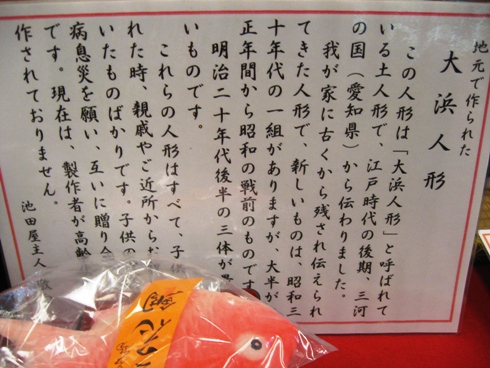 地元で作られた
大浜人形
この人形は「大浜人形」と呼ばれて
いる土人形で、江戸時代の後期、三河
の国（愛知県）から伝わりました。
我が家に古くから残され伝えられ
てきた人形で、新しいものは、昭和三
十年代の一組がありますが、大半が
正年間から昭和の戦前のものです
明治二十年代後半の三体が
いものです。
これらの人形はすべて、子供
れた時、親戚やご近所からお
いたものばかりです。子供の
病息災を願い、互いに贈り
です。現在は、製作者が高齢
作されておりません。
池田屋主人